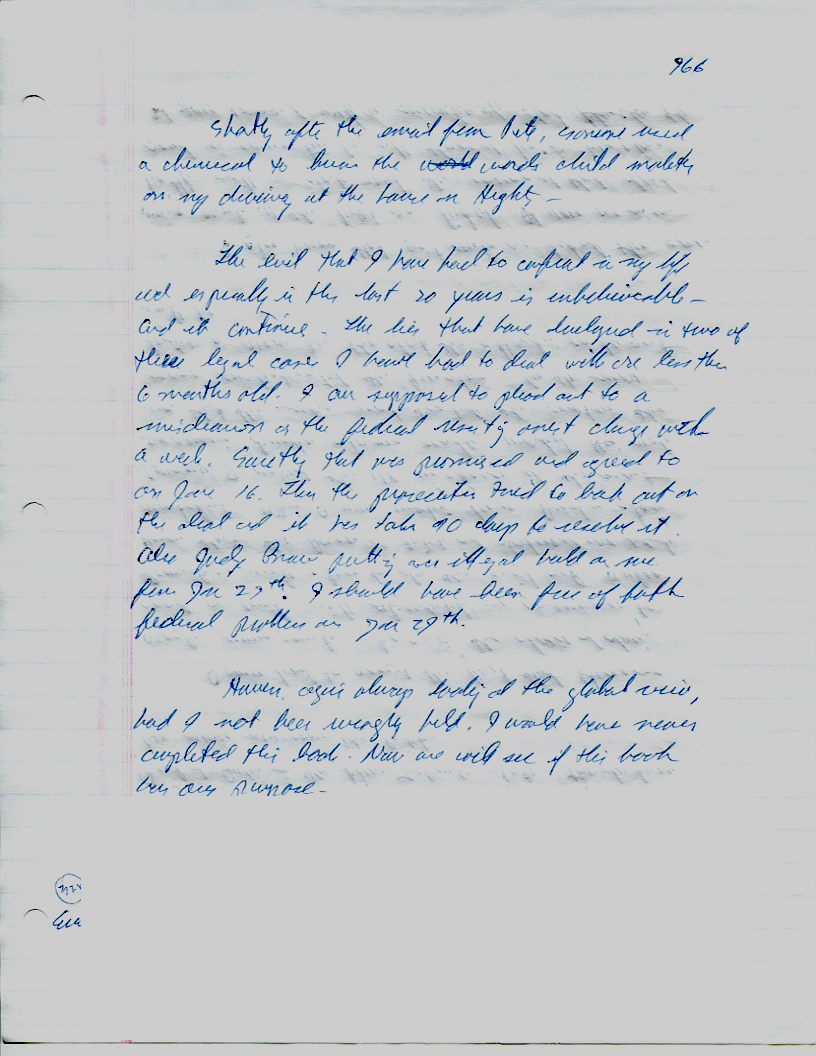 966
Shortly after the email from Pete, someone used
a chemical to burn the words child molester
on my driveway at the house on
The evil that I have had to confront in my life
and especially in the last 20 years is unbelievable -
and it continues - The lies that have developed in two of
these legal cases I have had to deal with are less than
6 months old. I am supposed to plead out to a
misdemeanor on the federal arrest charge with
a week. Exactly that was promised and agreed to
on June 16. Then the prosecutor tried to back out on
the deal and it has taken 90 days to resolve it.
Also Judge putting an illegal hold on me
from Jan 29th. I should have been free of both
federal problems on Jan 29th.
However, again always looking at the global view,
had I not been wrongly held, I would have never
completed this book. Now we will see if this book
has any purpose -